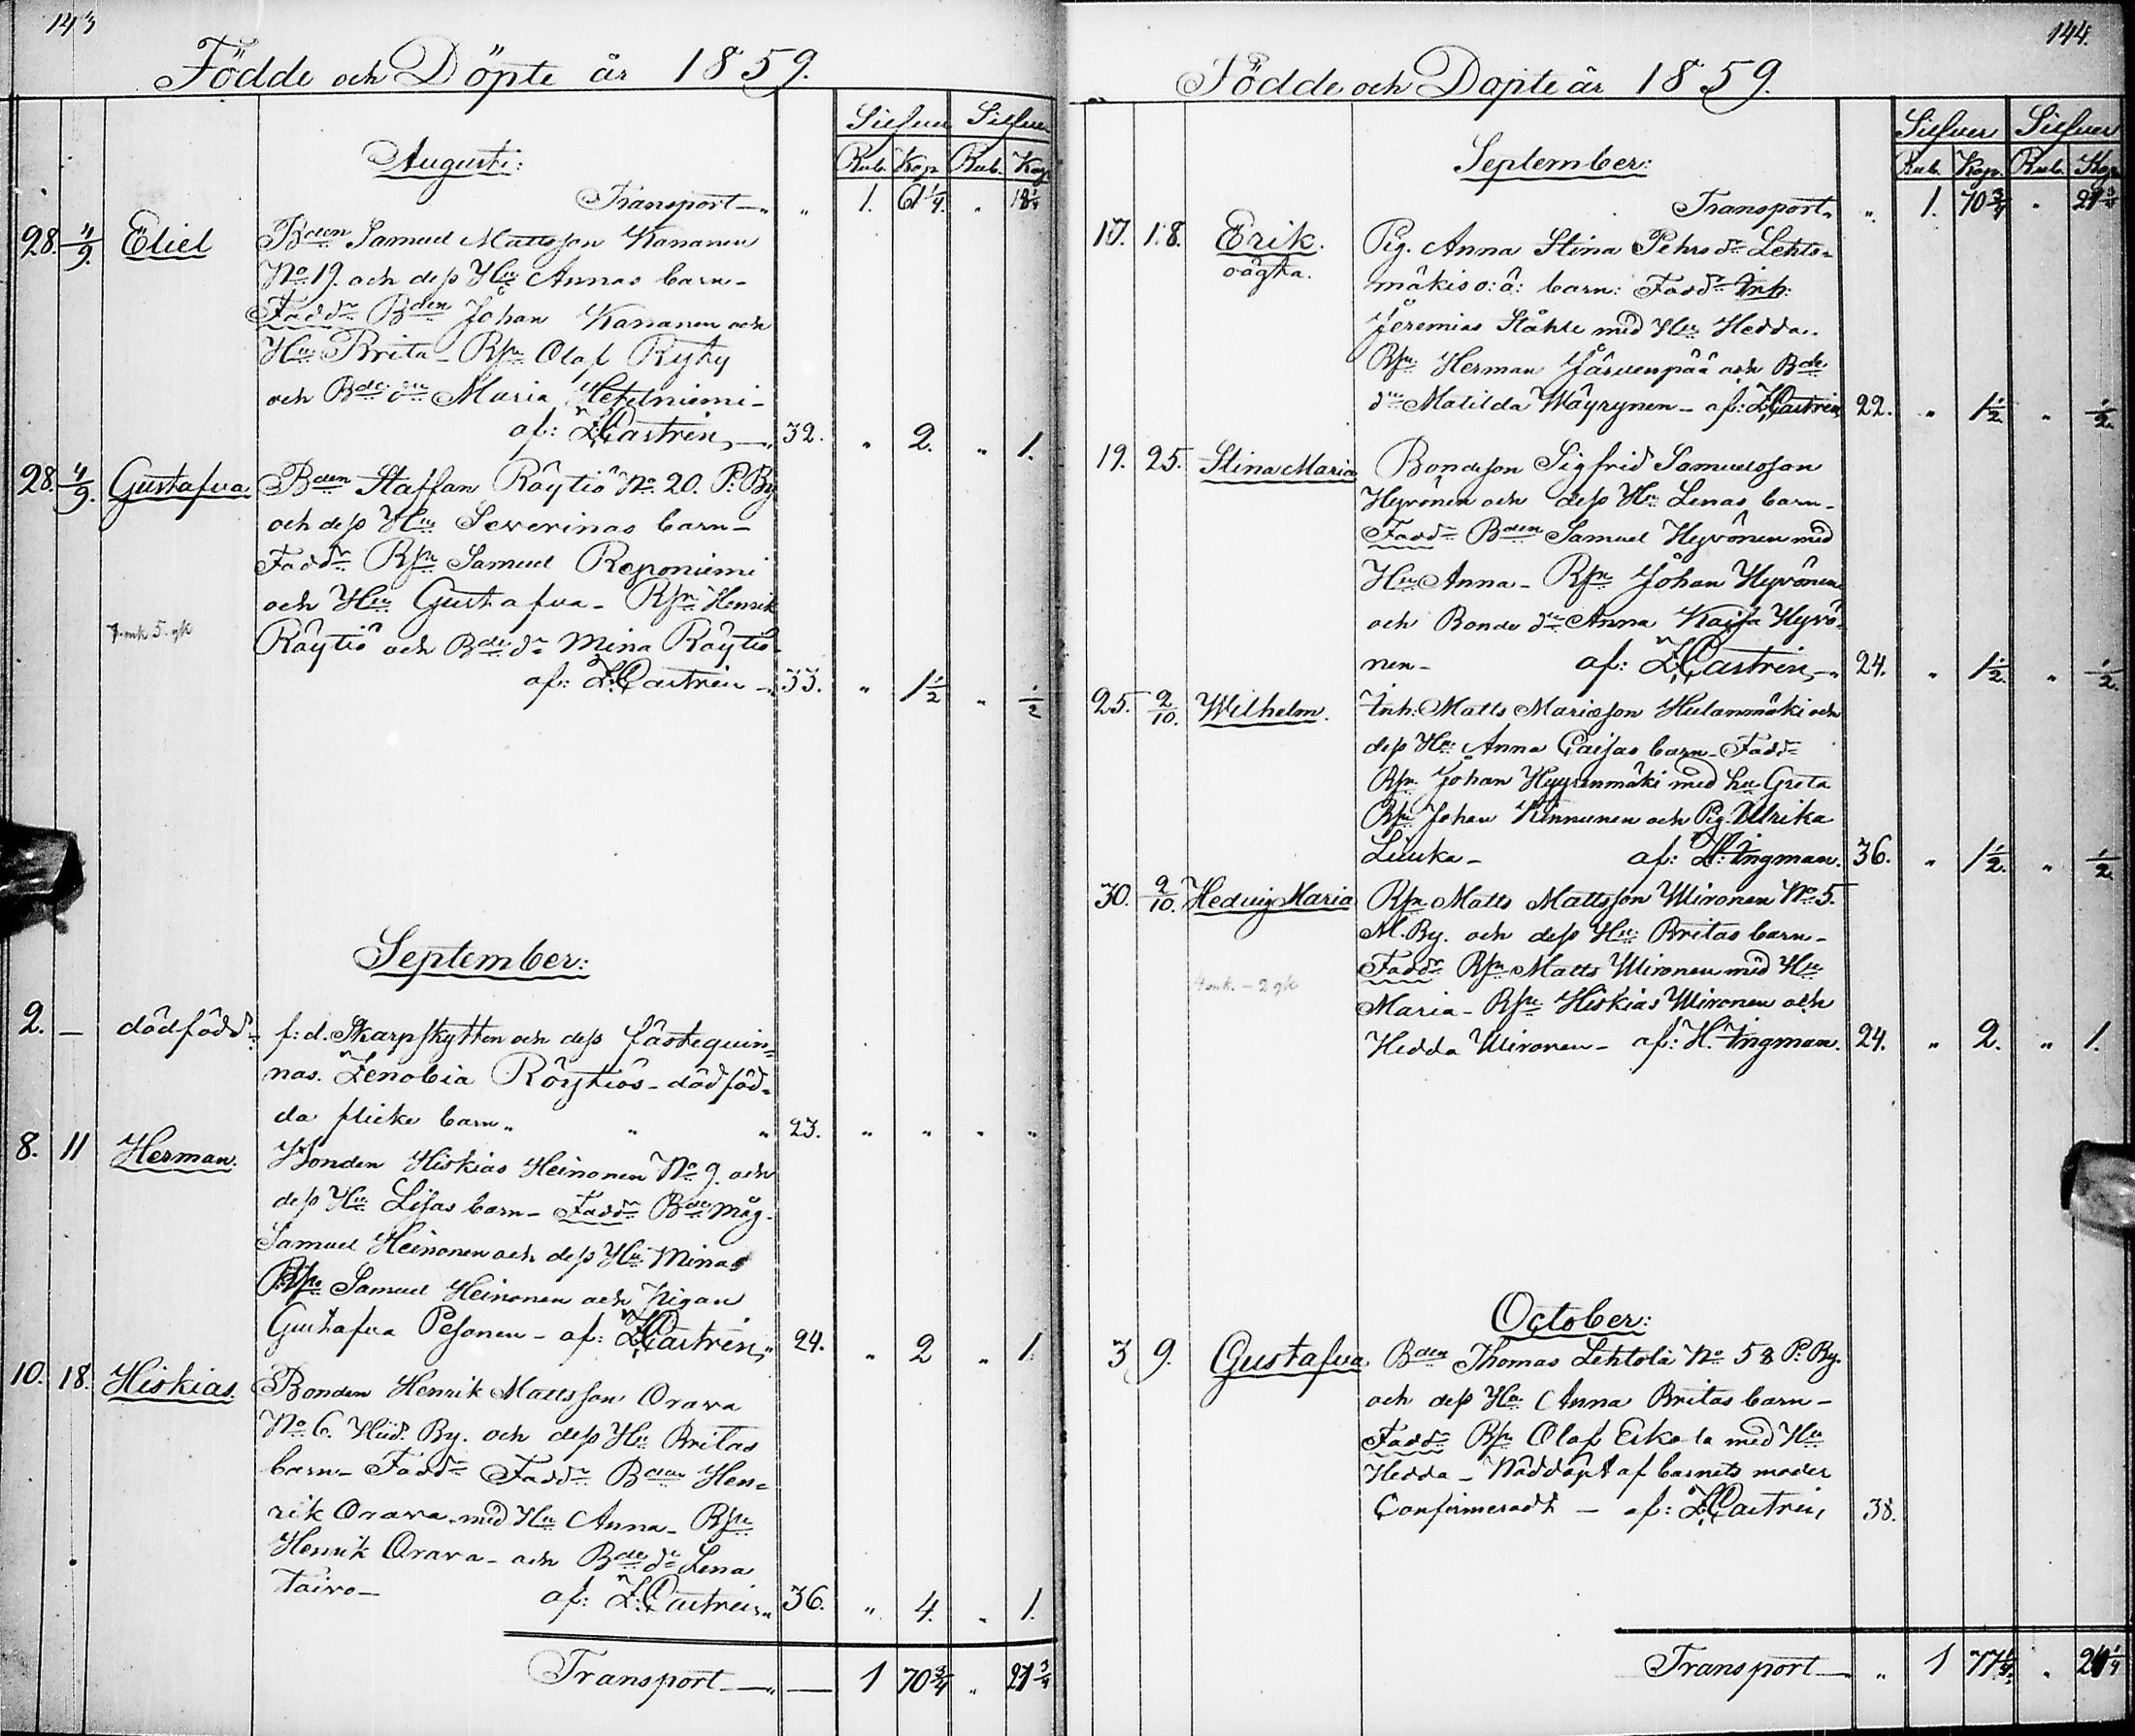 143
Födde och Döpte år 1859.
Silfver Silfver
Rub. Kop Rub. Kop
Augusti:
Transport " 1. 61 1/4. " 18 1/4
28. 4/9. Eliel Bden Samuel Mattsson Kananen
No 19. och dess Hu Annas barn-
Faddr Bden Johan Kananen och
Hu Brita - Bsn Olaf Ryhy
och Bde dr Maria Hetelniemi-
af: Z. Castrén 32. " 2. " 1.
28. 4/9. Gustafva Bden Staffan Räytiö No 20. P: By
och dess Hu Severinas barn-
Faddr Bsn Samuel Reponiemi
och Hu Gustafva - Bsn Henrik
Räytiö och Bde dr Mina Räytiö-
7. mk 5. gk
af: Z. Castrén 33. " 1 1/2 " 1/2
September:
2. - dödfödd f: d. Skarpskytten och dess fästeqvin=
nas. Zenobia Röytiös - död föd=
da flicke barn " " " 23. " " " "
8. 11 Herman. Bonden Hiskias Heinonen No 9. och
dess Hu Lisas barn - Faddr Bde måg.
Samuel Heinonen och dess Hu Minas
Bsn Samuel Heinonen och Pigan
Gustafva Pesonen - af: Z. Castrén, 24. " 2 " 1.
10. 18. Hiskias. Bonden Henrik Mattsson Orava
No 6. Hied. By. och dess Hu Britas
barn - Faddr Faddr Bden Hen=
rik Orava med Hu Anna - Bsn
Henrik Orava - och Bde dr Lena
Tairo- af: Z. Castrén 36. " 4. " 1.
Transport - 1 70 3/4 " 21 3/4
144.
Födde och Döpte år 1859.
Silfver Silfver
Rub. Kop. Rub. Kop
September:
Transport " 1. 70 3/4 " 21 3/4
17. 18. Erik. Pig. Anna Stina Pehrs dr Lehto=
oägta. mäkis o: ä: barn: Faddr Inh:
Jeremias Ståhle med Hu Hedda.
Bsn Herman Järvenpää och Bde
dr Matilda Wäyrynen - af: Z. Castrén 22. " 1 1/2 " 1/2.
19. 25. Stina Maria Bondeson Sigfrid Samuelsson
Hyvönen och dess Hu Lenas barn-
Faddr Bden Samuel Hyvönen med
Hu Anna - Bsn Johan Hyvönen
och Bonde dr Anna Kajsa Hyvö-
nen- af: Z. Castrén 24. " 1 1/2. " 1/2.
25. 2/10. Wilhelm. Inh: Matts Mariæson Hulanmäki och
dess Hu Anna Caisas barn - Faddr
Bsn Johan Hyyrenmäki med hu Greta
Bsn Johan Kinnunen och Pig. Ulrika
Liuska- af: H. Ingman. 36. " 1 1/2. " 1/2.
30. 2/10. Hedvig Maria Bsn Matts Mattsson Mironen No 5.
M. By. och dess Hu Britas barn-
Faddr Bsn Matts Mironen med Hu
4 mk. - 2 gk
Maria - Bsn Hiskias Mironen och
Hedda Mironen - af: H. Ingman. 24. " 2. " 1.
October:
3 9. Gustafva Bden Thomas Lehtola No 58 P: By.
och dess Hu Anna Britas barn-
Faddr Bsn Olaf Eskola med Hu
Hedda - Nöddöpt af barnets moder
Confirmeradt - af: Z. Castrén 38.
Transport " 1 77 1/4 " 24 1/4